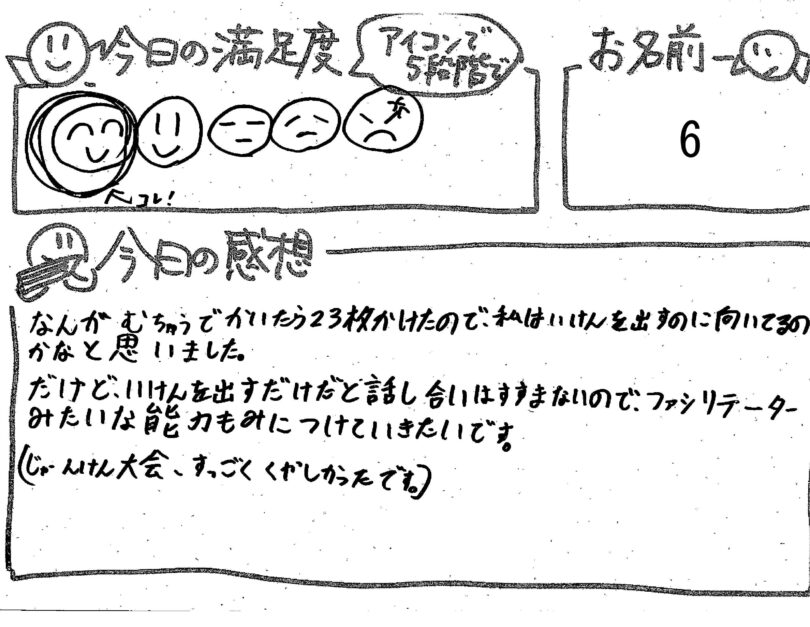 今日の満足度
アイコンで
5段階で
お名前
6
コレ!
今日の感想
なんか むちゅうでかいたら23枚かけたので、私はいけんを出すのに向いてるの
かなと思いました。
だけど、いけんを出すだけだと話し合いはすすまないので、ファシリテーター
みたいな能力もみにつけていきたいです。
(じゃーんけん大会、すっごく くやしかったです。)